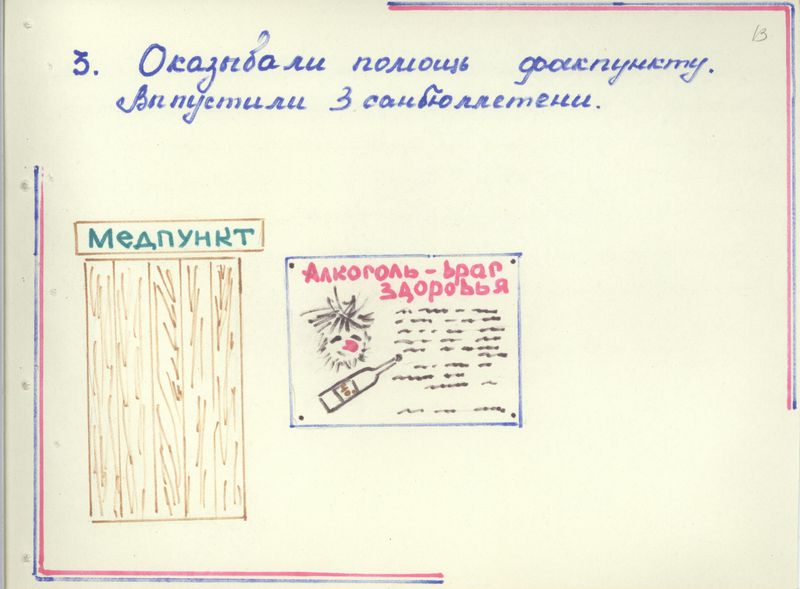 13
3. Оказывали помощь факпункту.
Выпустили 3 санбюллетени.
Медпункт
Алкоголь - враг
здоровья